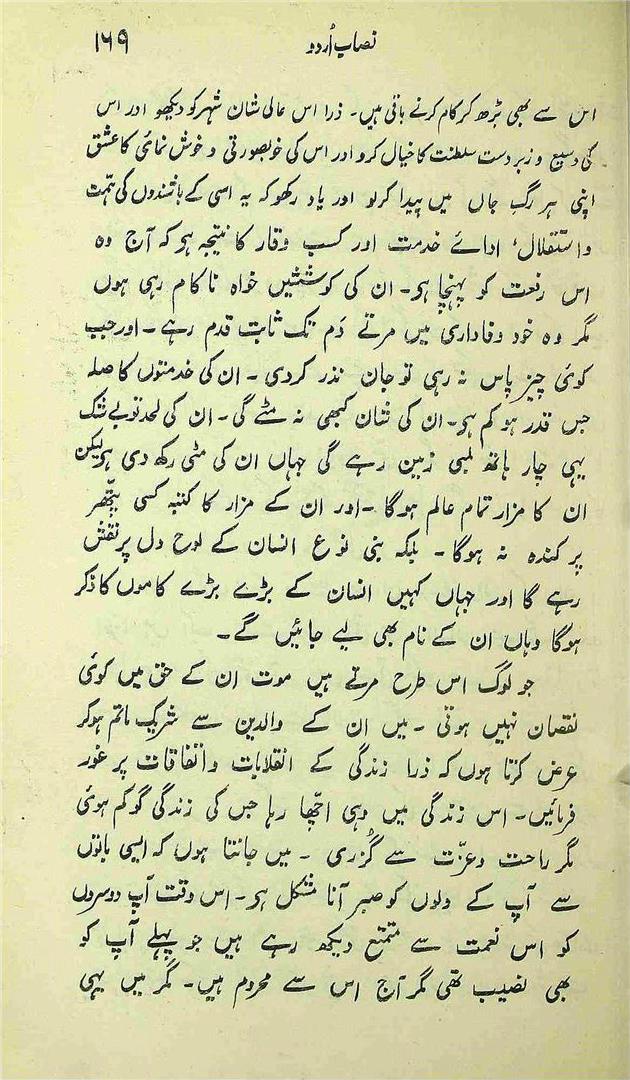 نصابِ اُردو
۱۶۹
اس سے بھی بڑھ کر کام کرنے باقی ہیں۔ ذرا اس عالی شان شہر کو دیکھو اور اس
کی وسیع و زبردست سلطنت کا خیال کرو اور اس کی خوبصورتی و خوش نمائی کا عشق
اپنی ہر رگِ جاں میں پیدا کرلو اور یاد رکھو کہ یہ اسی کے باشندوں کی ہمّت
و استقلال ادائے خدمت اور کسب وقار کا نتیجہ ہو کہ آج وہ
اس رفعت کو پہنچا ہو۔ ان کی کوششیں خواہ ناکام رہی ہوں
مگر وہ خود وفاداری میں مرتے دَم تک ثابت قدم رہے۔ اور جب
کوئی چیز پاس نہ رہی تو جان نذر کردی۔ ان کی خدمتوں کا صلہ
جس قدر ہو کم ہو۔ ان کی شان کبھی نہ مٹے گی۔ ان کی لحد تو بے شک
یہی چار ہاتھ لمبی زمین رہے گی جہاں ان کی مٹی رکھ دی ہو لیکن
ان کا مزار تمام عالم ہوگا۔ اور ان کے مزار کا کتبہ کسی پتّھر
پر کندہ نہ ہوگا۔ بلکہ بنی نوع انسان کے لوحِ دل پر نقش
رہے گا اور جہاں کہیں انسان کے بڑے بڑے کاموں کا ذکر
ہوگا وہاں ان کے نام بھی لیے جائیں گے۔
جو لوگ اس طرح مرتے ہیں موت ان کے حق میں کوئی
نقصان نہیں ہوتی۔ میں ان کے والدین سے شریکِ ماتم ہوکر
عرض کرتا ہوں کہ ذرا زندگی کے انقلابات و اتفاقات پر غور
فرمائیں۔ اس زندگی میں وہی اچّھا رہا جس کی زندگی گو کم ہوئی
مگر راحت و عزّت سے گُزری۔ میں جانتا ہوں کہ ایسی باتوں
سے آپ کے دلوں کو صبر آنا مشکل ہو۔ اس وقت آپ دوسروں
کو اس نعمت سے متمتع دیکھ رہے ہیں جو پہلے آپ کو
بھی نصیب تھی مگر آج اس سے محروم ہیں۔ مگر میں یہی